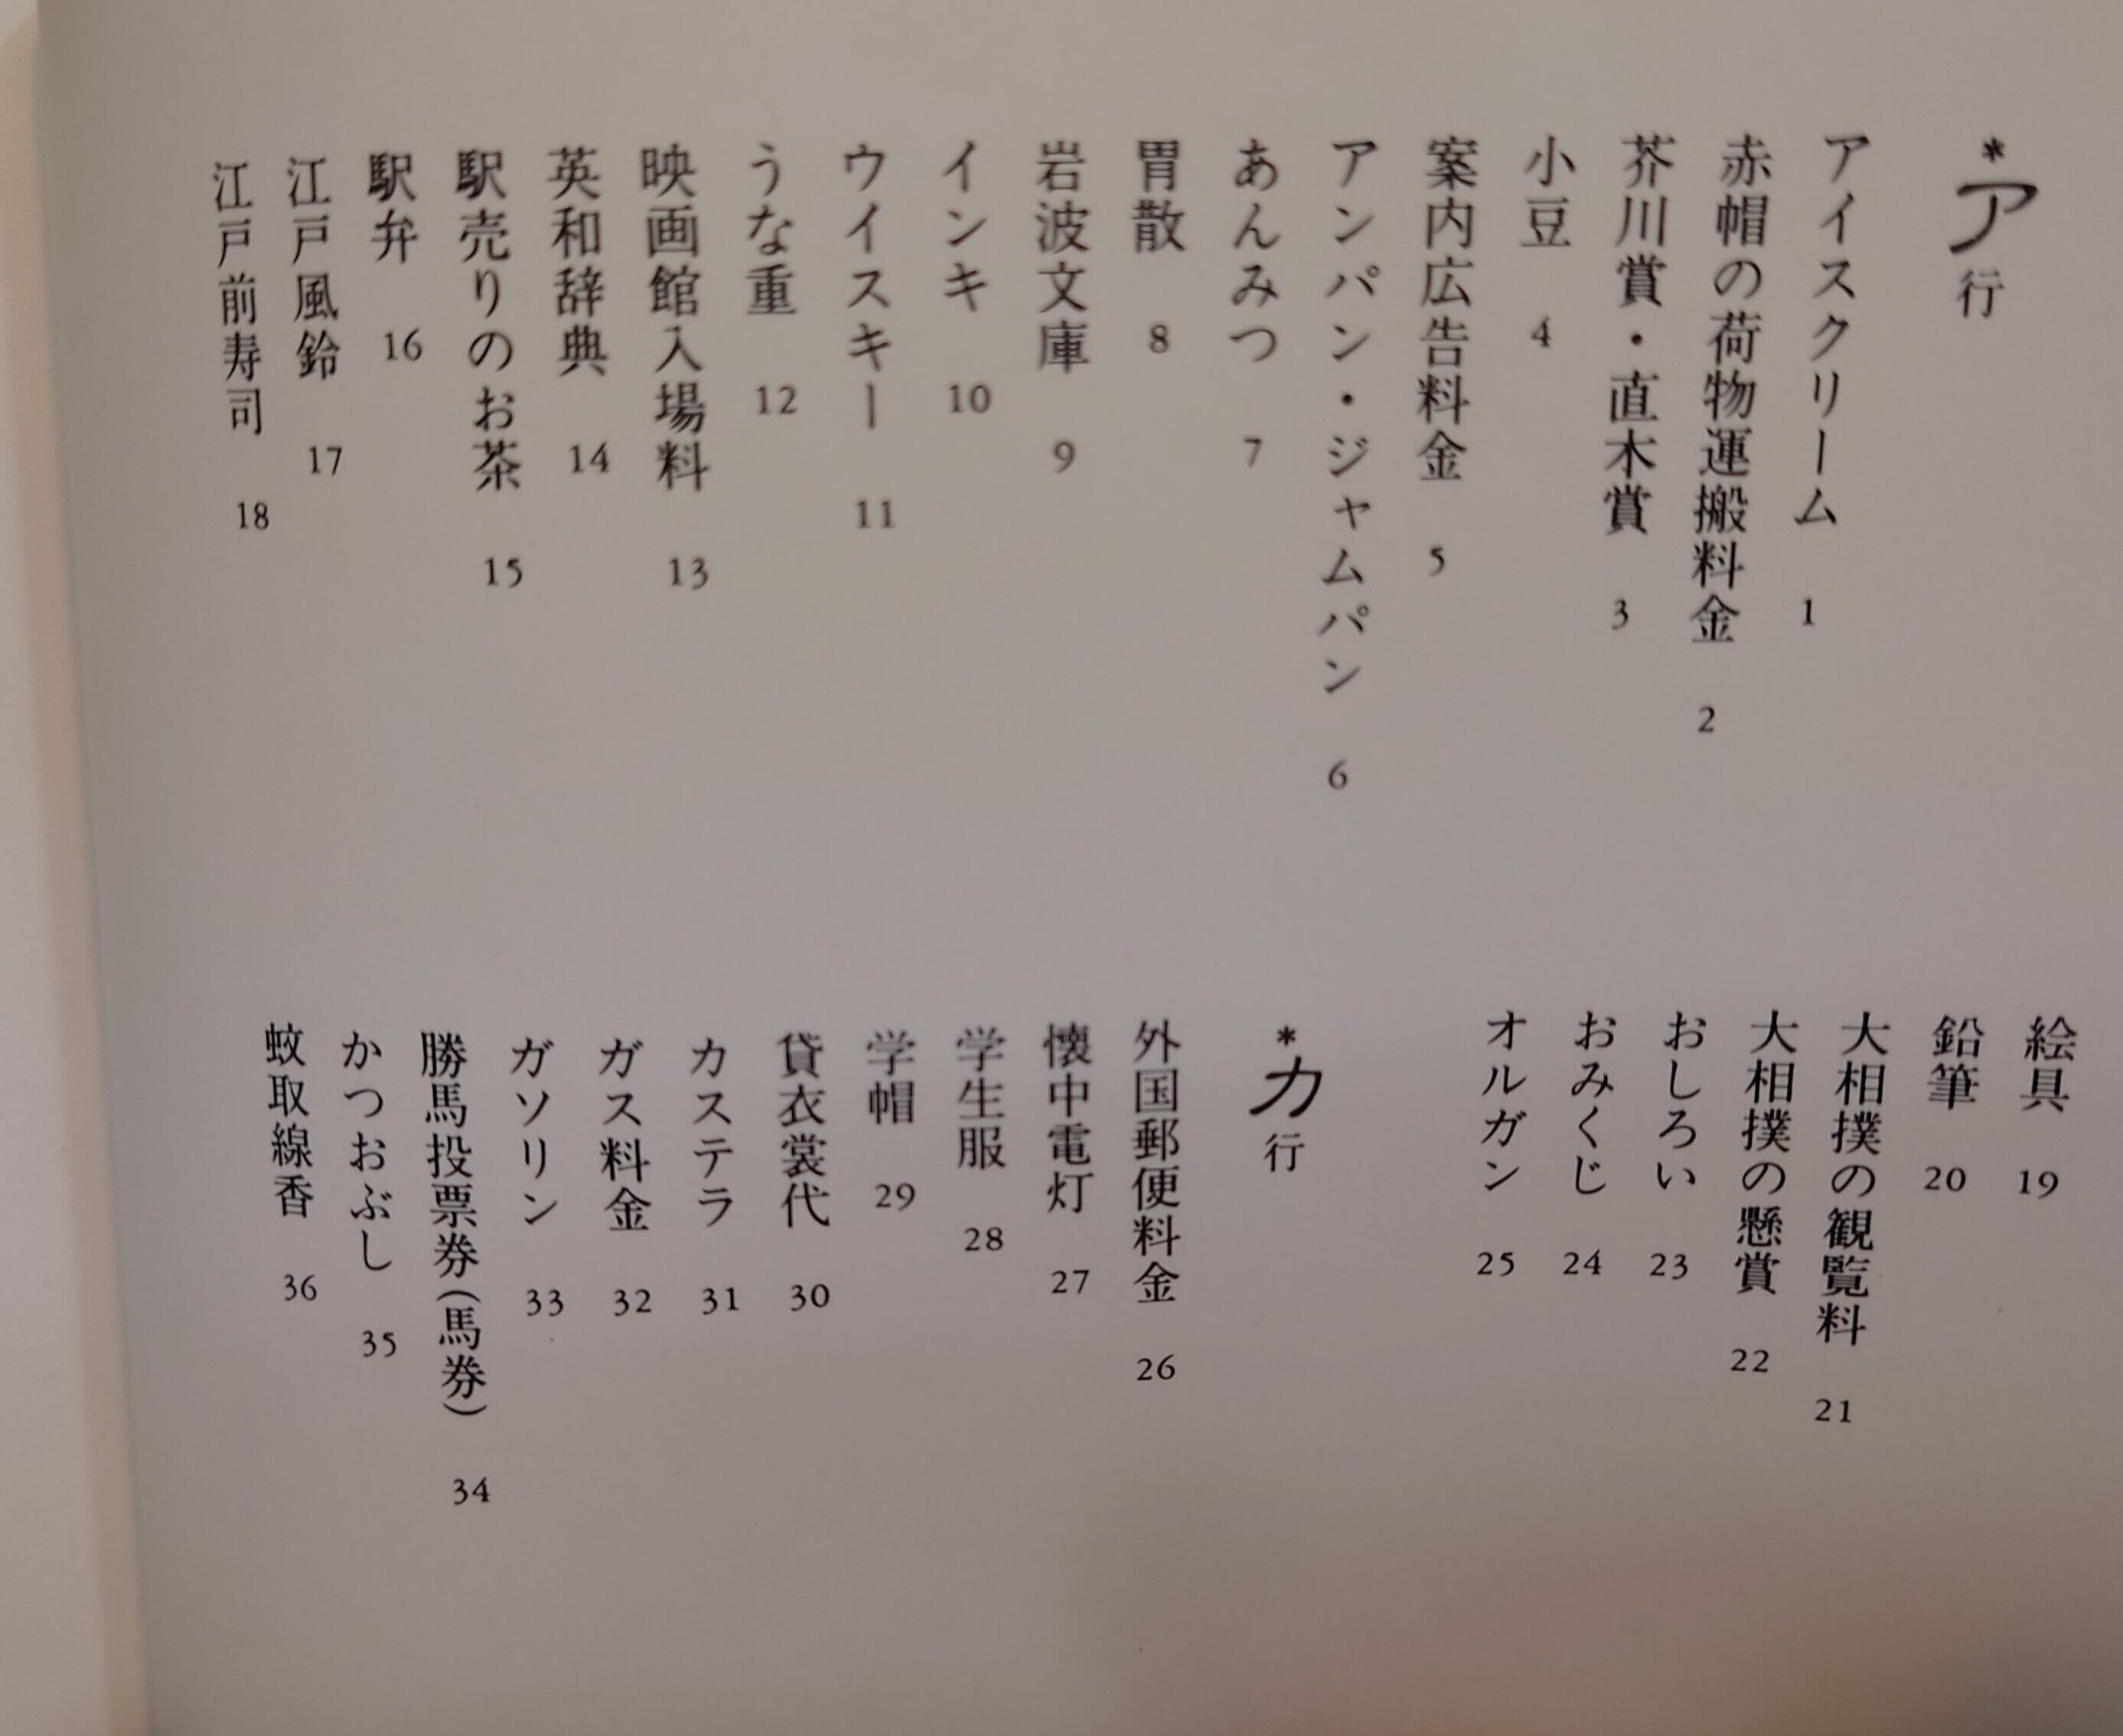 *ア行
アイスクリーム 1
赤帽の荷物運搬料金 2
芥川賞・直木賞 3
小豆 4
案内広告料金 5
アンパン・ジャムパン 6
あんみつ 7
胃散 8
岩波文庫 9
インキ 10
ウイスキー 11
うな重 12
映画館入場料 13
英和辞典 14
駅売りのお茶 15
駅弁 16
江戸風鈴 17
江戸前寿司 18
絵具 19
鉛筆 20
大相撲の観覧料 21
大相撲の懸賞 22
おしろい 23
おみくじ 24
オルガン 25
*カ行
外国郵便料金 26
懐中電灯 27
学生服 28
学帽 29
貸衣裳代 30
カステラ 31
ガス料金 32
ガソリン 33
勝馬投票券(馬券) 34
かつおぶし 35
蚊取線香 36